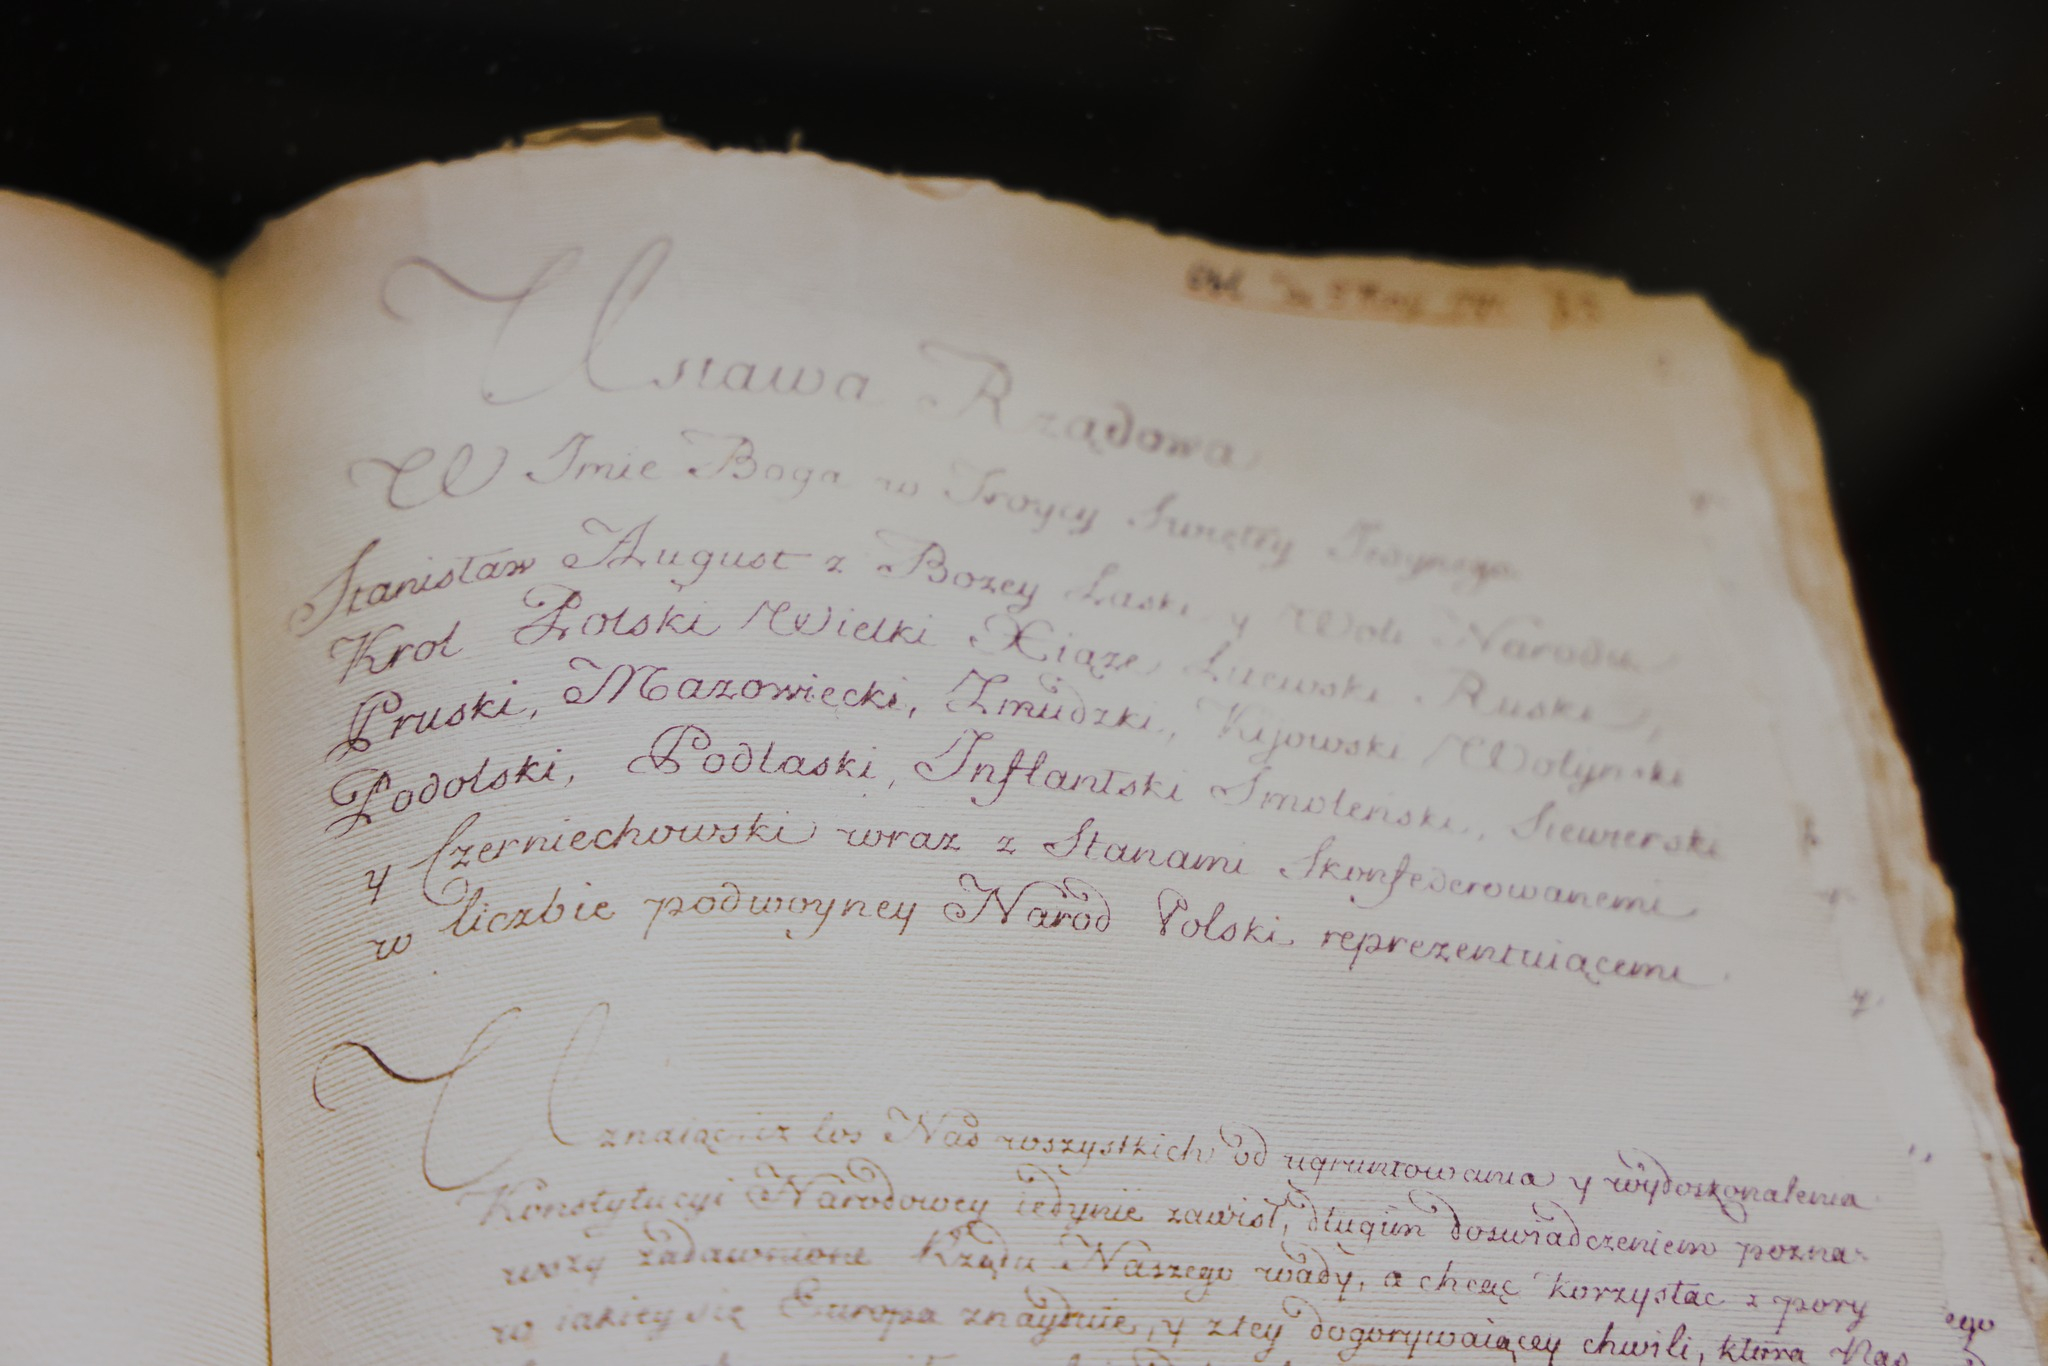 Ustawa Rządowa
W Imie Boga w Troycy Swiętey Jedynego
Stanisław August z Bozey Łaski y Woli Narodu
Krol Polski Wielki Xiąze Litewski Ruski,
Pruski, Mazowiecki, Zmudzki, Kijowski Wołynski
Podolski, Podlaski, Inflantski Smoleński, Siewierski
y Czerniechowski wraz z Stanami Skonfederowanemi
w liczbie podwoyney Naród Polski reprezentuiącemi
Uznaiąc iz los Nas wszystkich od ugruntowania y wydoskonalenia
Konstytucyi Narodowey iedynie zawisł, długim doswiadczeniem pozna-
wszy zadawnione Rządu Naszego wady, a chcąc korzystac z pory
w iakiey się Europa znayduie, y z tey dogorywaiącey chwili, ktora Nas